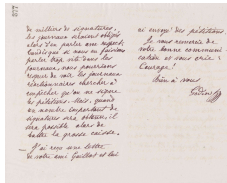 de milliers de signatures,
les journaux seraient obligés
alors d'en parler avec respect,
tandis que si nous en faisions
parler trop tôt dans les
journaux, nous pourrions
risquer de voir les journaux
réactionnaires chercher à
empêcher qu'on ne signe
les pétitions. Mais, quand
un nombre important de
signatures sera obtenu, il
sera possible alors de
battre la grosse caisse.
— J'ai reçu une lettre
de notre ami Guillot et lui
ai envoyé des pétitions.
Je vous remercie de
votre bonne communi
cation et vous crie :
Courage !
Bien à vous
Godin